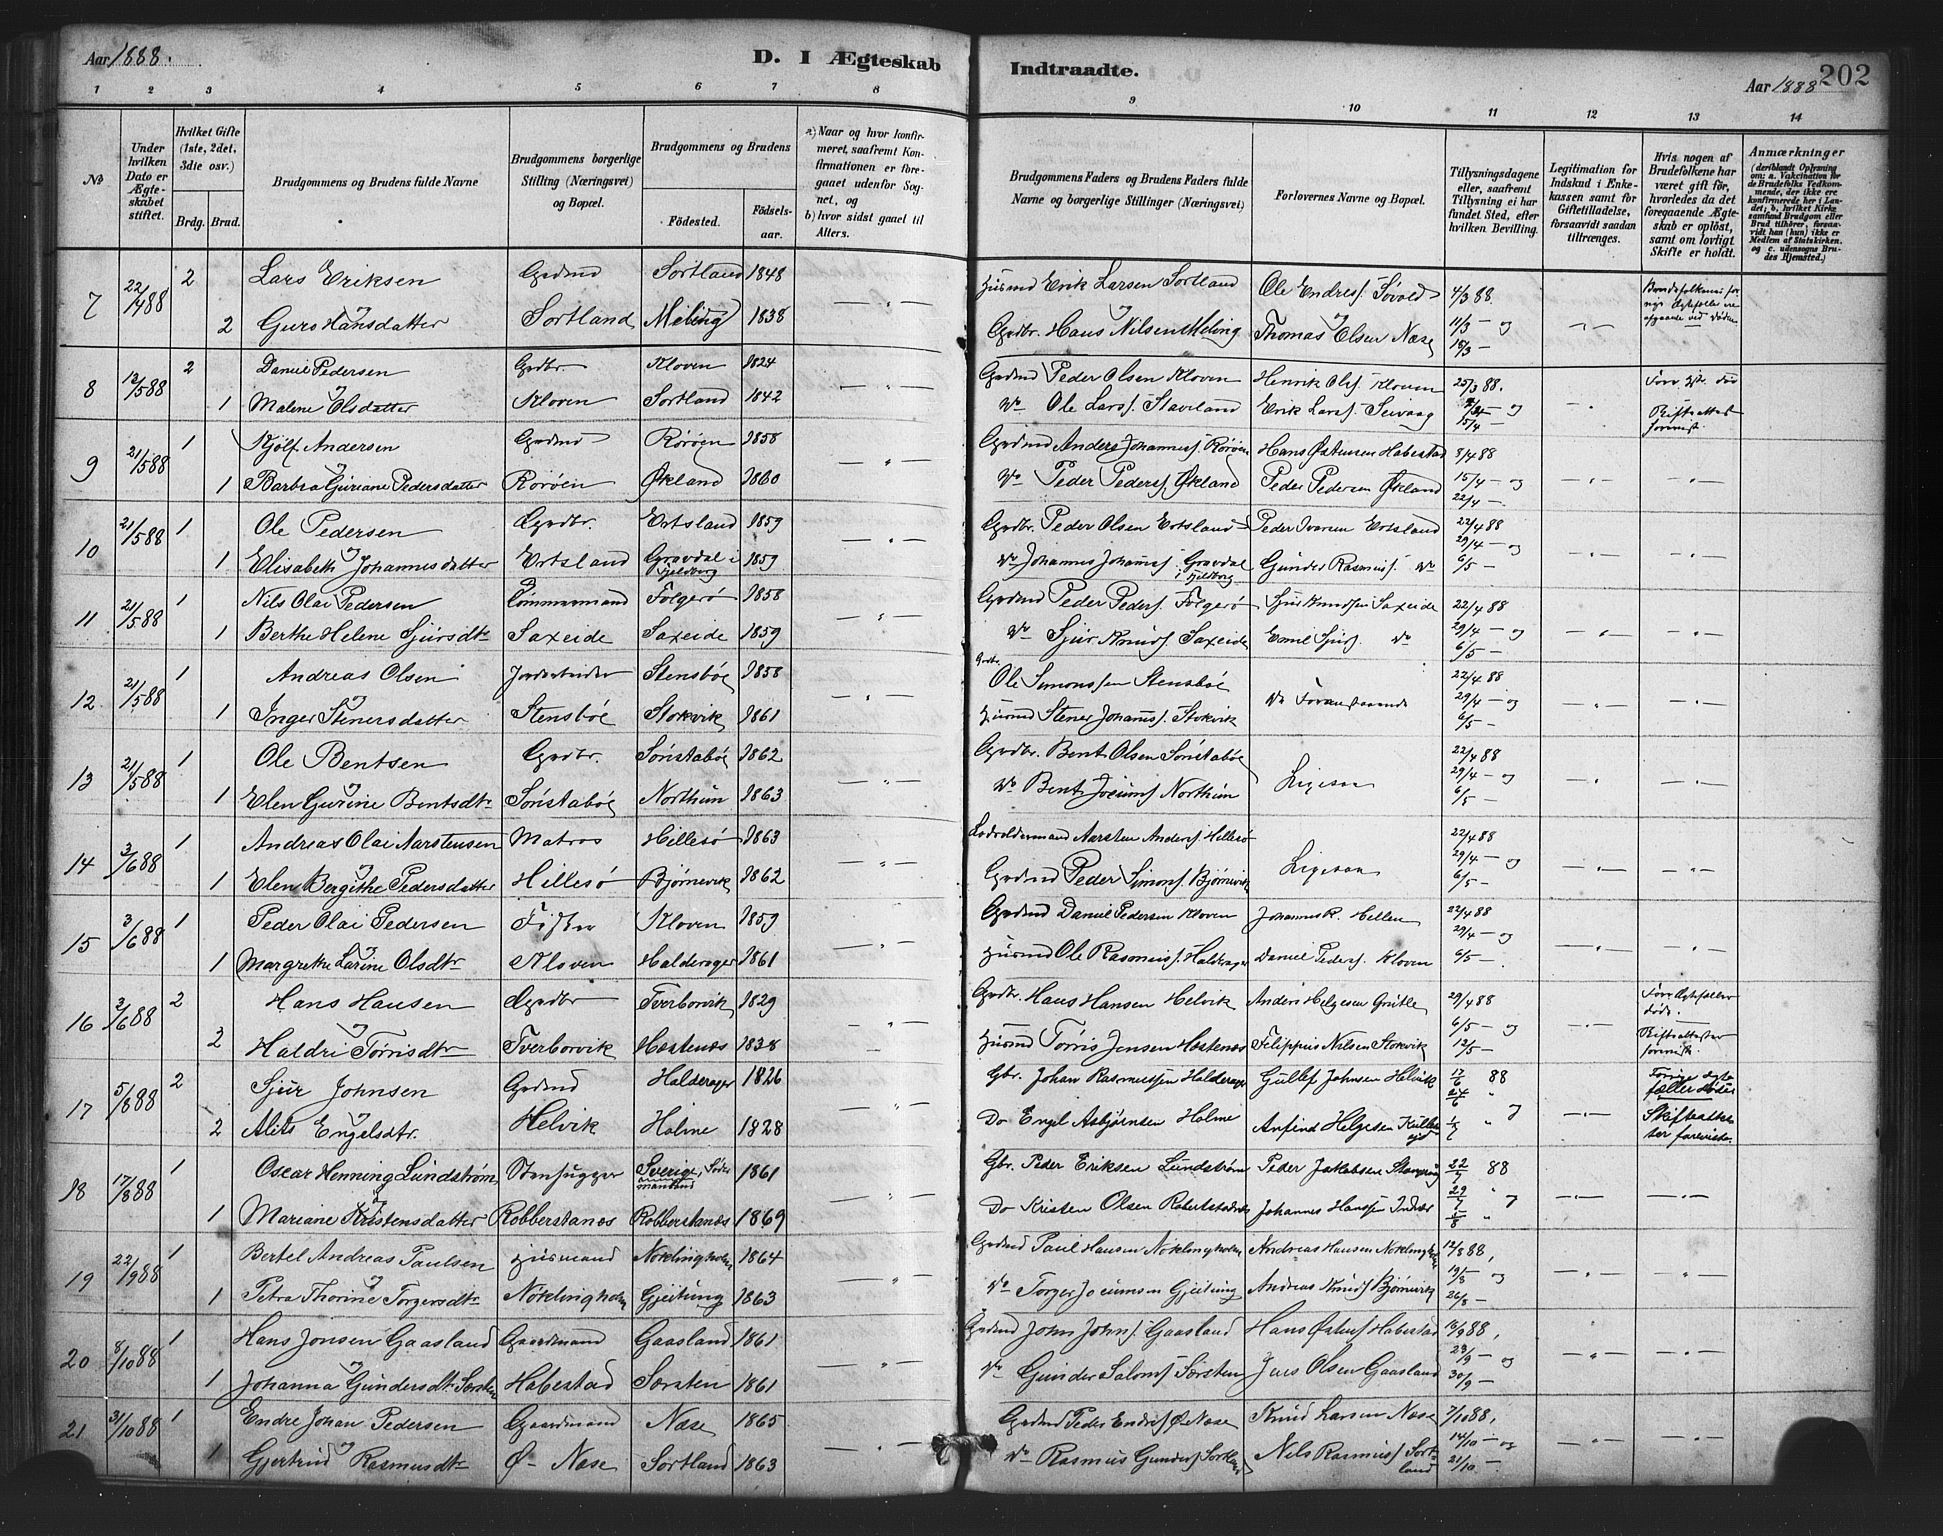 Aar 1888.
D. I Ægteskab
Indtraadte.
Aar 1888
202
1 2 3 4 5 6 7 8
9 10 11 12 13 14
No
Under hvilken Dato er Ægteskabet stiftet.
Hvilket Gifte (1ste, 2det, 3die osv.)
Brdg. Brud.
Brudgommens og Brudens fulde Navne
Brudgommens borgerlige Stilling (Næringsvei) og Bopæl.
Brudgommens og Brudens
Fødested.
Fødselsaar.
a) Naar og hvor konfirmeret, saafremt Konfirmationen er foregaaet udenfor Sognet, og
b) hvor sidst gaaet til Alters.
Brudgommens Faders og Brudens Faders fulde Navne og borgerlige Stillinger (Næringsvei)
Forlovernes Navne og Bopæl.
Tillysningsdagene eller, saafremt Tillysning ei har fundet Sted, efter hvilken Bevilling.
Legitimation for Indskud i Enkekassen samt for Giftetilladelse, forsaavidt saadan tiltrænges.
Hvis nogen af Brudefolkene har været gift før, hvorledes da det foregaaende Ægteskab er opløst, samt om lovligt Skifte er holdt.
Anmærkninger
(deriblandt Oplysning om: a. Vakcination for de Brudefolks Vedkommende, der ikke ere konfirmerede her i Landet; b. hvilket Kirkesamfund Brudgom eller Brud tilhører, forsaavidt han (hun) ikke er Medlem af Statskirken, og c. udensogns Brudes Hjemsted.)
7 22/4 88 2 Lars Eriksen Grdmd Sortland 1848 Husmd Erik Larsen Sortland Ole Endres. 4/3 88.
2 Guro Hansdatter Sortland Meling 1838 Grdbr. Hans Nilsen Meling Thomas Olsen Næse 11/3 — og
18/3 —
8 13/5 88 2 Daniel Pedersen Grdbr. Kloven 1824 Grdmd Peder Olsen Kloven Henrik Ols. Kloven 25/3 88.
1 Malene Olsdatter Kloven Sortland 1842 Do Ole Lars. Staveland Erik Lars. — og
15/4 —
9 21/5 88 1 Kjølf Andersen Grdmd Rørøen 1858 Grdmd Anders Johannes. Rørøen Hans Østensen Habestad 8/4 88
1 Barbra Guriane Pedersdatter Rørøen Økland 1860 Do Peder Peders. Økland Peder Pedersen Økland 15/4 — og
22/4 —
10 21/5 88 1 Ole Pedersen Grdbr. Ertsland 1859 Grdbr. Peder Olsen Ertsland Peder Ivarsen Ertsland 22/4 88
1 Elisabeth Johannesdatter Ertsland Gravdal i Fjeldberg 1859 Do Johannes Johannes. Gravdal i Fjeldberg Gunder Rasmus. Do 29/4 — og
6/5 —
11 21/5 88 1 Nils Olai Pedersen Tømmermand Folgerø 1858 Grdmd Peder Peders. Folgerø Sjur Knudsen Saxeide 22/4 88
1 Berthe Helene Sjursdtr Saxeide Saxeide 1859 Do Sjur Knuds. Saxeide Emil Sjurs. Do 29/4 — og
6/5 —
12 21/5 88 1 Andreas Olsen Jordarbeider Stensbøe 1858 Grdbr. Ole Simonssen Stensbøe 22/4 88
1 Inger Stenersdatter Stensbøe Stokvik 1861 Husmd Stener Johannes. Stokvik De Foranstaaende 29/4 — og
6/5 —
13 21/5 88 1 Ole Bentsen Grdbr. Sønstabøe 1862 Grdbr. Bent Olsen Sønstabøe 22/4 88
1 Elen Gurine Bentsdtr Sønstabøe Northun 1863 Do Bent Joeums. Northun Ligesaa 29/4 — og
6/5 —
14 3/6 88 1 Andreas Olai Aarstensen Matros Hillesø 1863 Lodsoldermand Aarsten Anders. Hillesø 22/4 88
1 Elen Bergithe Pedersdatter Hillesø Bjørnevik 1862 Grdmd Peder Simons. Bjørnevik Ligesaa 29/4 — og
6/5 —
15 3/6 88 1 Peder Olai Pedersen Fisker Kloven 1859 Grdmd Daniel Pedersen Kloven Johannes R. Hellen 22/4 88
1 Margrethe Larine Olsdtr Kloven Halderager 1861 Husmd Ole Rasmus. Halderager Daniel Peders. Kloven 29/4 — og
6/5 —
16 3/6 88 2 Hans Hansen Grdbr Tverborvik 1829 Grdbr. Hans Hansen Helvik Anders Helgesen Grutle 29/4 88
2 Haldri Tørrisdtr Tverborvik Hestenæs 1838 Husmd Tørris Jensen Hestenæs Filippus Nilsen Stokvik 6/5 — og
12/5 —
17 5/8 88 2 Sjur Johnsen Grdmd Halderager 1826 Gbr. Johan Rasmussen Halderager Gullef Johnsen Helvik 17/6 88
24/6 "
2 Alits Engelsdtr. Helvik Holme 1828 Do Engel Asbjørnsen Holme Anfind Helgesen 1/7 "
Forrige Ægtefæller døde. Skifteattester forevist.
18 17/8 88 1 Oscar Henning Lundstrøm Stenhugger Sverige, Södermanland 1861 Gbr. Peder Eriksen Lundstrøm Peder Jakobsen 22/7 88
1 Mariane Kristensdatter Robberstanæs Robberstanæs 1869 Do Kristen Olsen Robertstadnæs Johannes Hansen Indvær 29/7 "
5/8 "
19 22/9 88 1 Bertel Andreas Paulsen Husmand Nøklingholm 1864 Grdmd Paul Hansen Nøklingholm Andreas Hansen Nøklingholm 12/8 88,
1 Petra Thorine Torgersdtr Nøklingholm Gjeitung 1863 Do Torger Joeumsen Gjeitung Andreas Knuds. Bjørnevik 19/8 — og
26/8 —
20 8/10 88 1 Hans Jonsen Gaasland Gaardmand Gaasland 1861 Grdmd John Johns. Gaasland Hans Østens. Habestad 16/9 88,
1 Johanna Gundersdtr Særsten Habestad Særsten 1861 Do Gunder Saloms. Særsten Jens Olsen Gaasland 23/9 — og
30/9 —
21 31/10 88 1 Endre Johan Pedersen Gaardmand Næse 1865 Grdmd Peder Endres. Ø. Næse Knud Larsen Næse 7/10 88,
1 Gjertrud Rasmusdtr Ø. Næse Sortland 1863 Do Rasmus Gunders. Sortland Nils Rasmus. Sortland 14/10 — og
21/10 —